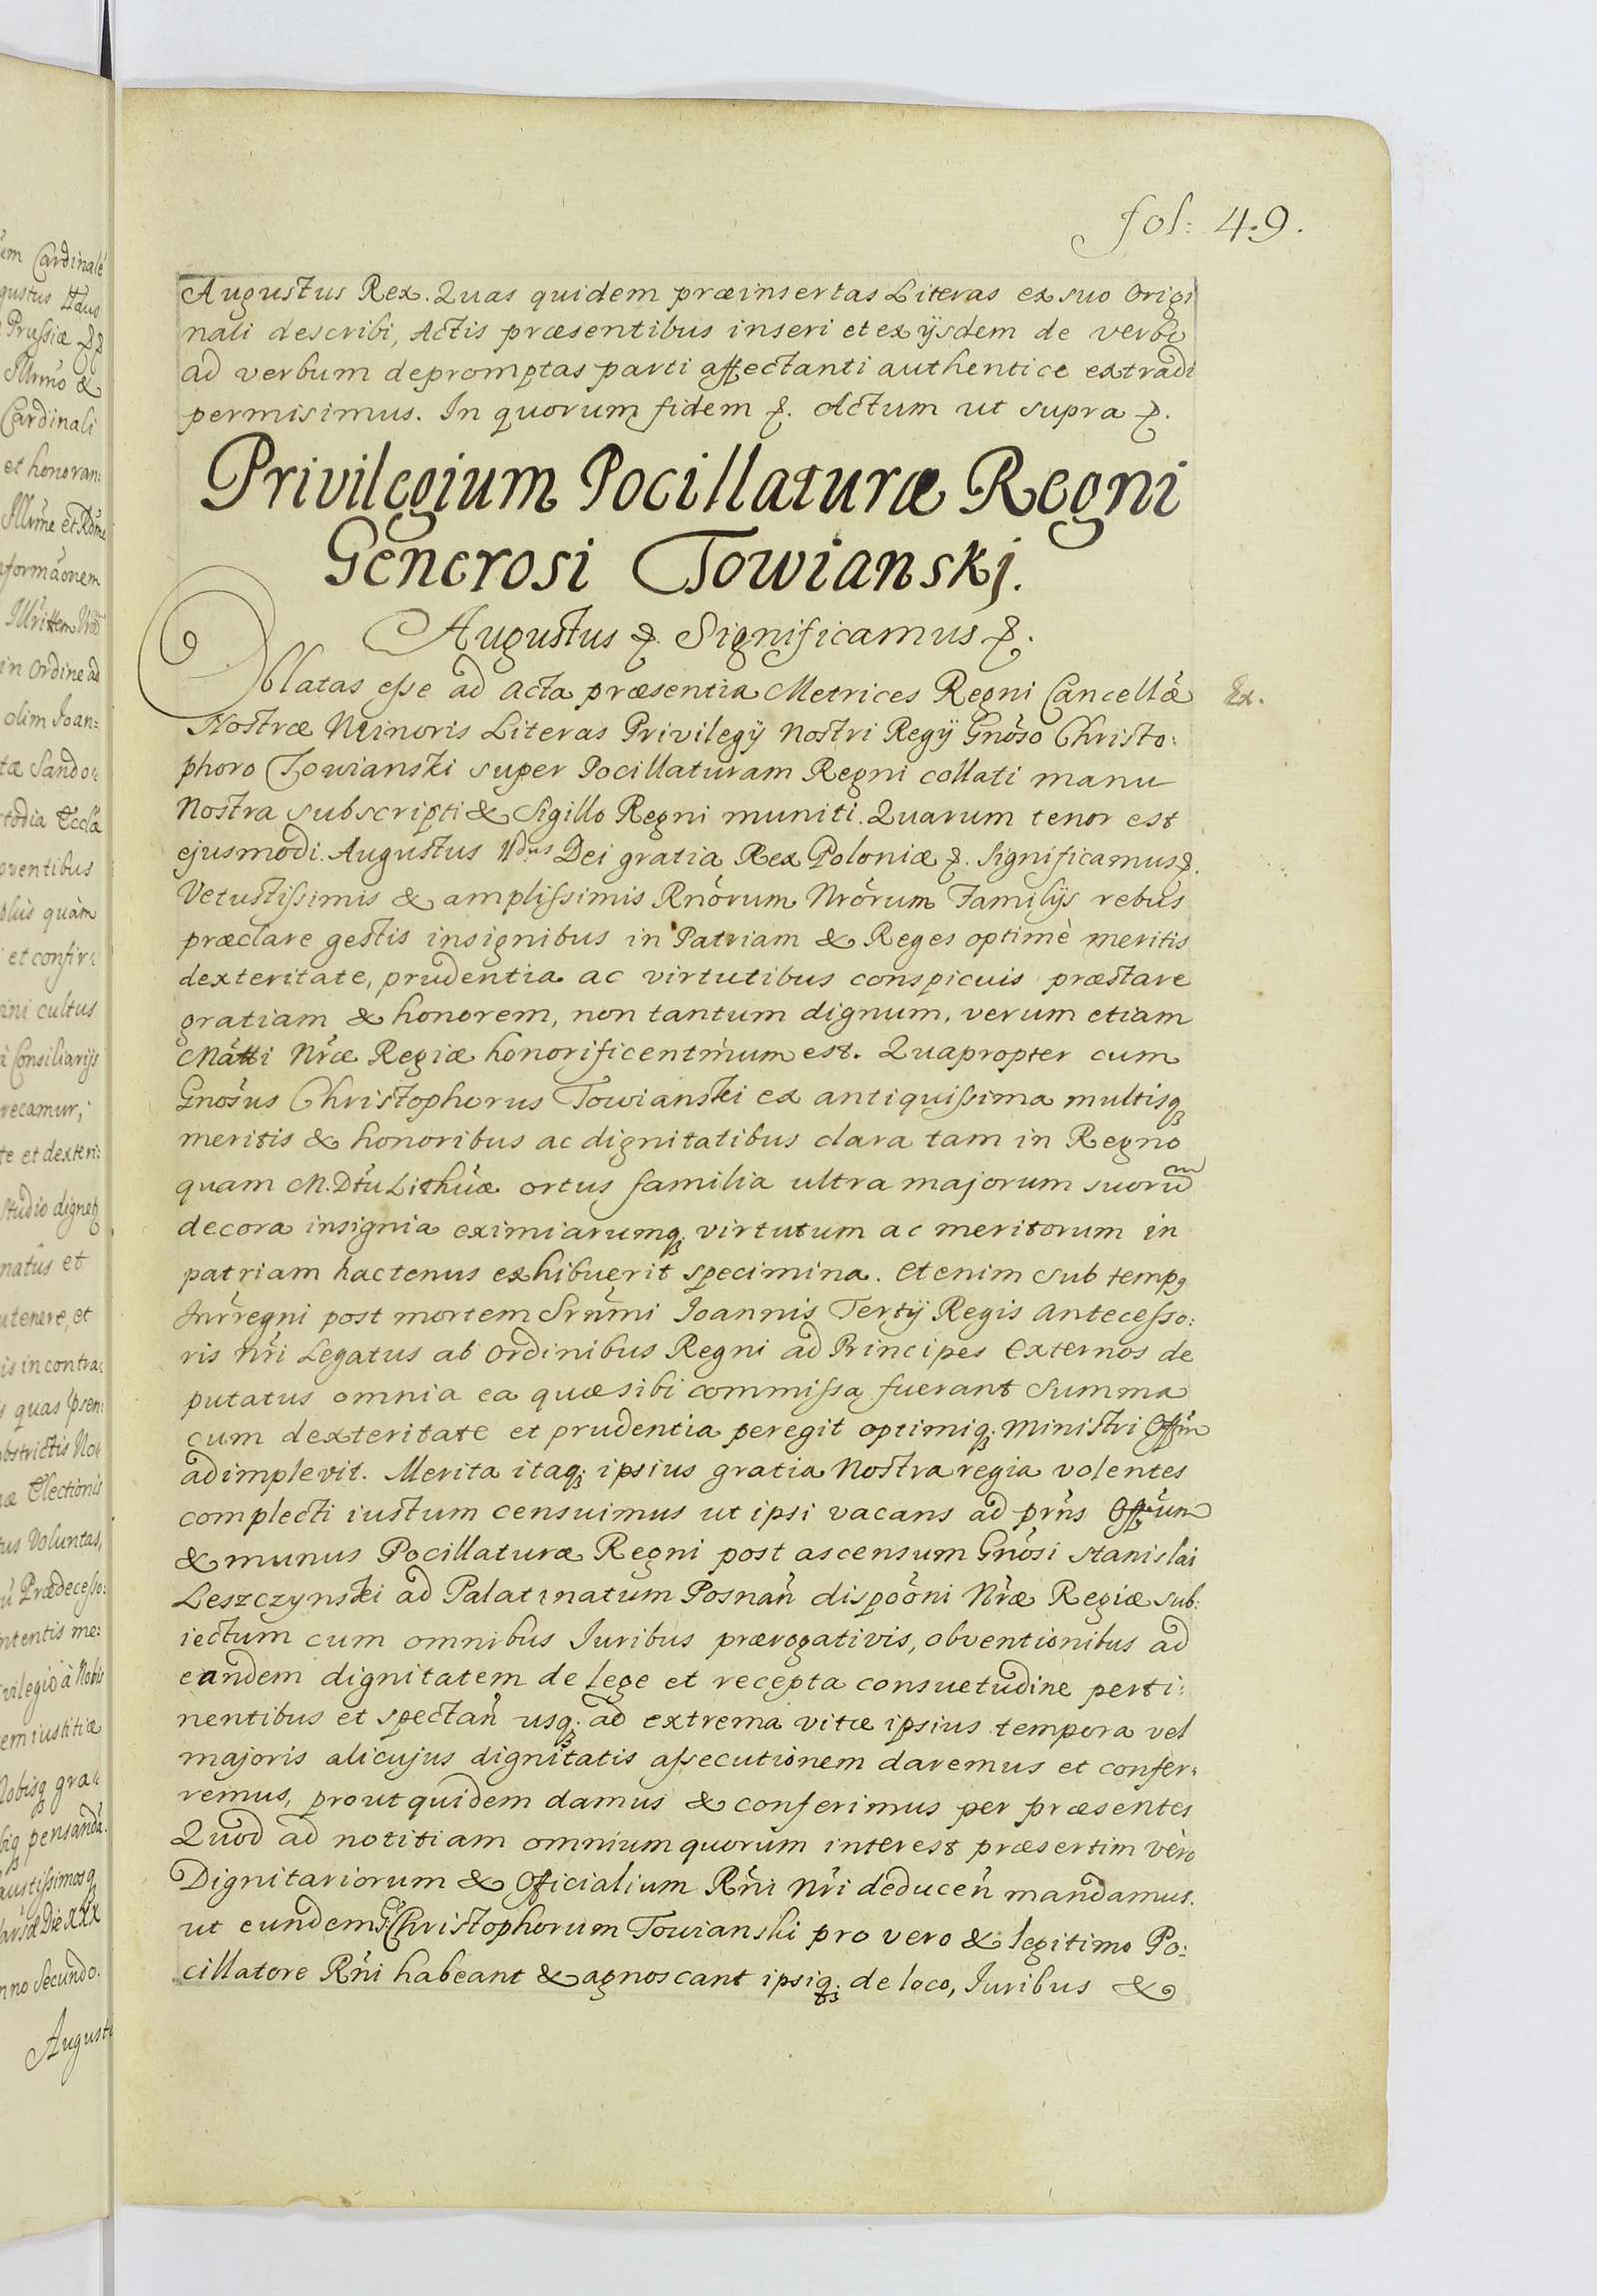 fol: 49.
Augustus Rex. Quas quidem præinsertas Literas ex suo Origi
nali describi, Actis præsentibus inseri et ex ijsdem de verbo
ad verbum depromptas parti affectanti authentice extradi
permisimus. In quorum fidem &. Actum ut supra &.
Privilegium Pocillaturæ Regni
Generosi Towianskj.
Augustus &. Significamus &.
Oblatas esse ad acta præsentia Metrices Regni Cancellæ
Ex.
Nostræ Minoris Literas Privilegÿ Nostri Regÿ Gnoso Christo:
phoro Towianski super Pocillaturam Regni collati manu
Nostra subscripti & Sigillo Regni muniti. Quarum tenor est
ejusmodi. Augustus IIdus Dei gratia Rex Poloniæ &. Significamus &.
Vetustissimis & amplissimis Rnorum Nrorum Familÿs rebus
præclare gestis insignibus in Patriam & Reges optimè meritis
dexteritate, prudentia ac virtutibus conspicuis præstare
gratiam & honorem, non tantum dignum, verum etiam
Matti Nræ Regiæ honorificentmum est. Quapropter cum
Gnosus Christophorus Towianski ex antiquissima multisq
meritis & honoribus ac dignitatibus clara tam in Regno
quam M. Dtu Lithuæ ortus familia ultra majorum suorum
decora insignia eximiarumq virtutum ac meritorum in
patriam hactenus exhibuerit specimina. Etenim sub temp9
Inrregni post mortem Srnmi Ioannis Tertÿ Regis antecesso:
ris nri Legatus ab Ordinibus Regni ad Principes Externos de
putatus omnia ea quæ sibi commissa fuerant summa
cum dexteritate et prudentia peregit optimiq Ministri Offm
adimplevit. Merita itaq ipsius gratia Nostra regia volentes
complecti iustum censuimus ut ipsi vacans ad prns Offium
& munus Pocillaturæ Regni post ascensum Gnosi Stanislai
Leszczynski ad Palatinatum Posnan dispooni Nræ Regiæ sub:
iectum cum omnibus Iuribus prærogativis, obventionibus ad
eandem dignitatem de lege et recepta consuetudine perti:
nentibus et spectan usq ad extrema vitæ ipsius tempora vel
majoris alicujus dignitatis assecutionem daremus et confer:
remus, prout quidem damus & conferimus per præsentes
Quod ad notitiam omnium quorum interest præsertim vero
Dignitariorum & Officialium Rni Nri deducen mandamus.
ut eundem G Christophorum Towianski pro vero & legitimo Po:
cillatore Rni habeant & agnoscant ipsiq de loco, Iuribus &